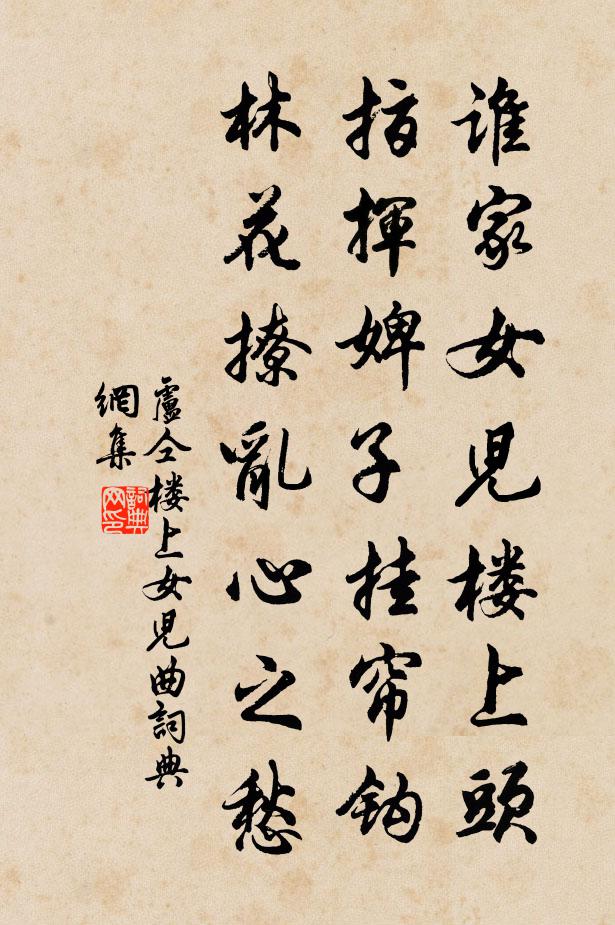 誰家女児楼上頭
指揮婢子挂帘鈎
林花撩亂心之愁
盧仝楼上女児曲詞典
網集
詞典
网印